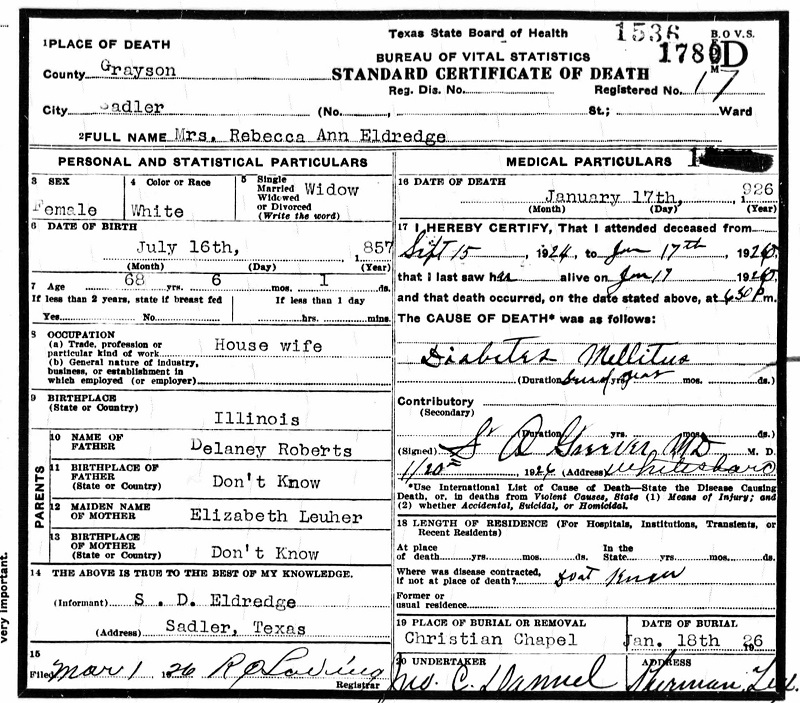 Texas State Board of Health
1536
B. O. V. S.
BUREAU OF VITAL STATISTICS
STANDARD CERTIFICATE OF DEATH
Reg. Dis. No.
Registered No. 17
1 PLACE OF DEATH
County Grayson
City Sadler (No. St.; Ward
2 FULL NAME Mrs. Rebecca Ann Eldredge
PERSONAL AND STATISTICAL PARTICULARS
3 SEX Female
4 Color or Race White
5 Single Married Widowed or Divorced (Write the word) Widow
6 DATE OF BIRTH
July 16th, 1857
(Month) (Day) (Year)
7 Age 68 yrs. 6 mos. 1 ds.
If less than 2 years, state if breast fed
Yes No
If less than 1 day
hrs. mins.
8 OCCUPATION
(a) Trade, profession or
particular kind of work House wife
(b) General nature of industry,
business, or establishment in
which employed (or employer)
9 BIRTHPLACE
(State or Country) Illinois
PARENTS
10 NAME OF FATHER Delaney Roberts
11 BIRTHPLACE OF FATHER (State or Country) Don't Know
12 MAIDEN NAME OF MOTHER Elizabeth Leuher
13 BIRTHPLACE OF MOTHER (State or Country) Don't Know
14 THE ABOVE IS TRUE TO THE BEST OF MY KNOWLEDGE.
(Informant) S. D. Eldredge
(Address) Sadler, Texas
15
Filed Mar 1 1926
Registrar
MEDICAL PARTICULARS
16 DATE OF DEATH
January 17th, 1926
(Month) (Day) (Year)
17 I HEREBY CERTIFY, That I attended deceased from
Sept 15, 1924, to Jan 17th, 1926,
that I last saw her alive on Jan 17 1926,
and that death occurred, on the date stated above, at 630 P m.
The CAUSE OF DEATH* was as follows:
Diabetes Mellitus
(Duration yrs. mos. ds.)
Contributory
(Secondary)
(Duration yrs. mos. ds.)
(Signed) M D M. D.
1/20 1926 (Address) Whitesboro
*Use International List of Cause of Death—State the Disease Causing
Death, or, in deaths from Violent Causes, State (1) Means of Injury; and
(2) whether Accidental, Suicidal, or Homicidal.
18 LENGTH OF RESIDENCE (For Hospitals, Institutions, Transients, or
Recent Residents)
At place of death yrs. mos. ds.
In the State yrs. mos. ds.
Where was disease contracted,
if not at place of death?
Former or
usual residence
19 PLACE OF BURIAL OR REMOVAL
Christian Chapel
DATE OF BURIAL
Jan. 18th 1926
20 UNDERTAKER
Jno. C. Dannel
ADDRESS
Sherman, Tex.
very important.